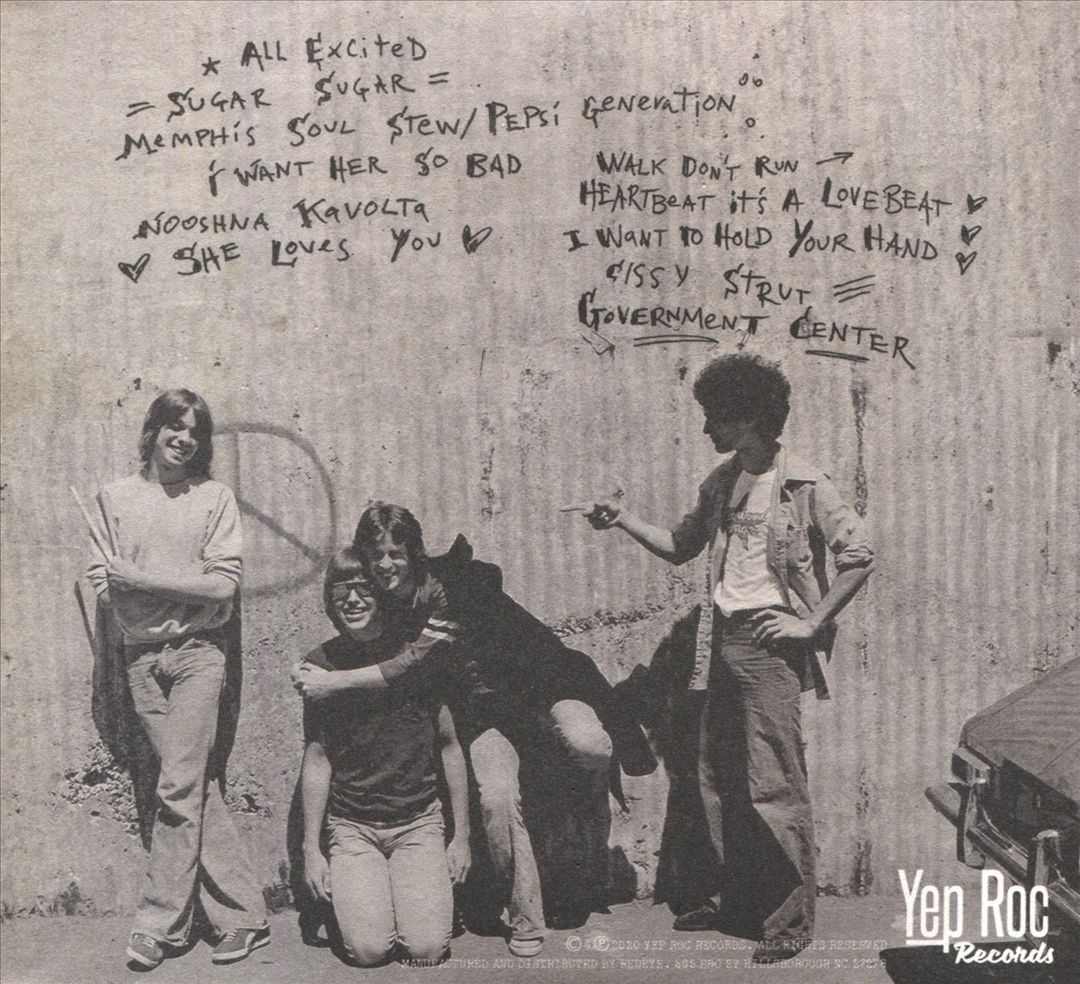 * ALL EXCITED
= SUGAR SUGAR =
MEMPHIS SOUL STEW/PEPSI GENERATION
I WANT HER SO BAD
NOOSHNA KAVOLTA
SHE LOVES YOU
WALK DON'T RUN →
HEARTBEAT IT'S A LOVEBEAT
I WANT TO HOLD YOUR HAND
CISSY STRUT
GOVERNMENT CENTER
Yep Roc
Records
©&℗2020 YEP ROC RECORDS. ALL RIGHTS RESERVED
MANUFACTURED AND DISTRIBUTED BY REDEYE. 505 ENO ST HILLSBOROUGH NC 27278